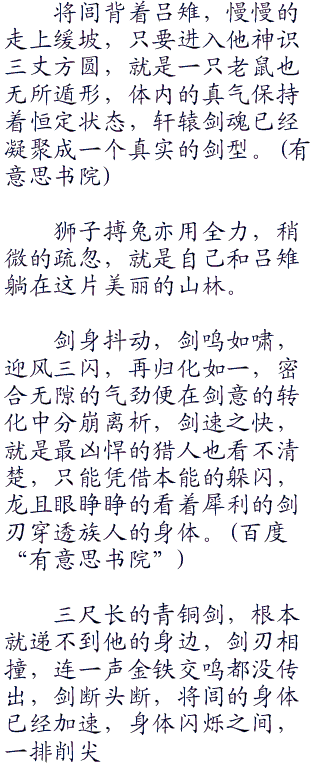 将闾背着吕雉，慢慢的
走上缓坡，只要进入他神识
三丈方圆，就是一只老鼠也
无所遁形，体内的真气保持
着恒定状态，轩辕剑魂已经
凝聚成一个真实的剑型。(有
意思书院)
狮子搏兔亦用全力，稍
微的疏忽，就是自己和吕雉
躺在这片美丽的山林。
剑身抖动，剑鸣如啸，
迎风三闪，再归化如一，密
合无隙的气劲便在剑意的转
化中分崩离析，剑速之快，
就是最凶悍的猎人也看不清
楚，只能凭借本能的躲闪，
龙且眼睁睁的看着犀利的剑
刃穿透族人的身体。(百度
“有意思书院”)
三尺长的青铜剑，根本
就递不到他的身边，剑刃相
撞，连一声金铁交鸣都没传
出，剑断头断，将闾的身体
已经加速，身体闪烁之间，
一排削尖